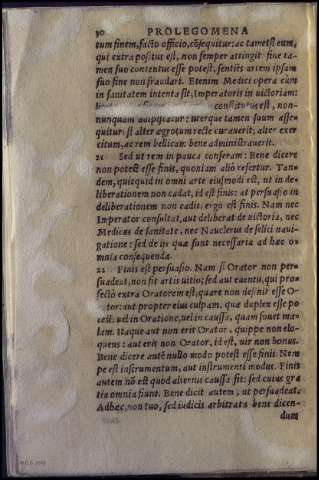 30 PROLEGOMENA
tum finem, facto officio, cõsequitur: ac tametsi eum,
qui extra positus est, non semper attingit: fine ta-
men suo contentus esse potest, sentiés artem ipsam
suo fine non fraudari. Etenim Medici opera cùm
in sanitatem intenta sit, Imperatoris in uictoriam:
constitutus est, non-
nunquam adipiscatur: uterque tamen suum asse-
quitur: si alter ægrotum recte curauerit, alter exer
citum, ac rem bellicam bene administrauerit.
21 Sed ut rem in pauca conferam: Bene dicere
non potest esse finis, quoniam aliò refertur. Tan-
dem, quicquid in omni arte eiusmodi est, ut in de-
liberationem non cadat, id est finis: at persuasio in
deliberationem non cadit. ergo est finis. Nam nec
Imperator consultat, aut deliberat de uictoria, nec
Medicus de sanitate, nec Nauclerus de felici naui-
gatione: sed de ijs quæ sunt necessaria ad hæc o-
mnia consequenda.
22 Finis est persuasio. Nam si Orator non per-
suadeat, non fit artis uitio; sed aut euentu, qui pro-
fectò extra Oratorem est, quare non desinit esse O-
rator: aut propter eius culpam. quæ duplex esse po
test: uel in Oratione, uel in caussa, quam fouet ma-
lam. Itaque aut non erit Orator, quippe non elo-
quens: aut erit non Orator, id est, uir non bonus.
Bene dicere autē nullo modo potest esse finis. Nem
pe est instrumentum, aut instrumenti modus. Finis
autem nõ est quod alterius caussa fit: sed cuius gra
tia omnia fiunt. Bene dicit autem, ut persuadeat.
Adhæc, non tuo, sed iudicis arbitratu bene dicen-
dum